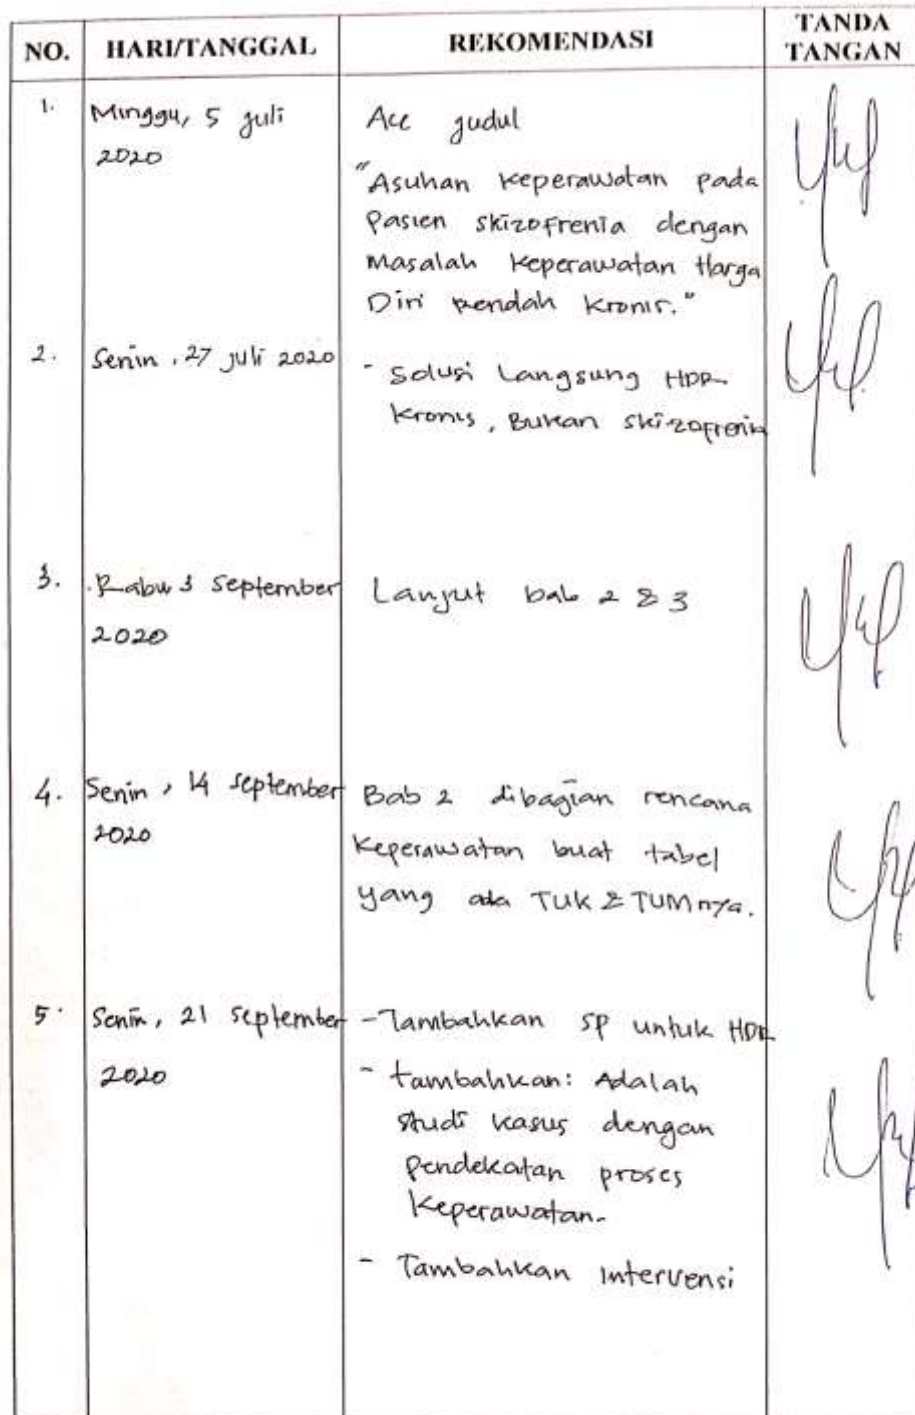 NO. HARI/TANGGAL REKOMENDASI TANDA TANGAN
1. Minggu, 5 juli Acc judul
2020
"Asuhan keperawatan pada
Pasien skizofrenia dengan
Masalah keperawatan Harga
Diri Rendah Kronis."
2. Senin, 27 juli 2020 - Solusi Langsung HDR
Kronis, Bukan skizofrenia
3. Rabu 3 September Lanjut bab 2 & 3
2020
4. Senin, 14 September Bab 2 dibagian rencana
2020 Keperawatan buat tabel
yang ada TUK & TUMnya.
5. Senin, 21 September - Tambahkan SP untuk HDR
2020 - tambahkan: Adalah
studi kasus dengan
pendekatan proses
Keperawatan.
- Tambahkan Intervensi